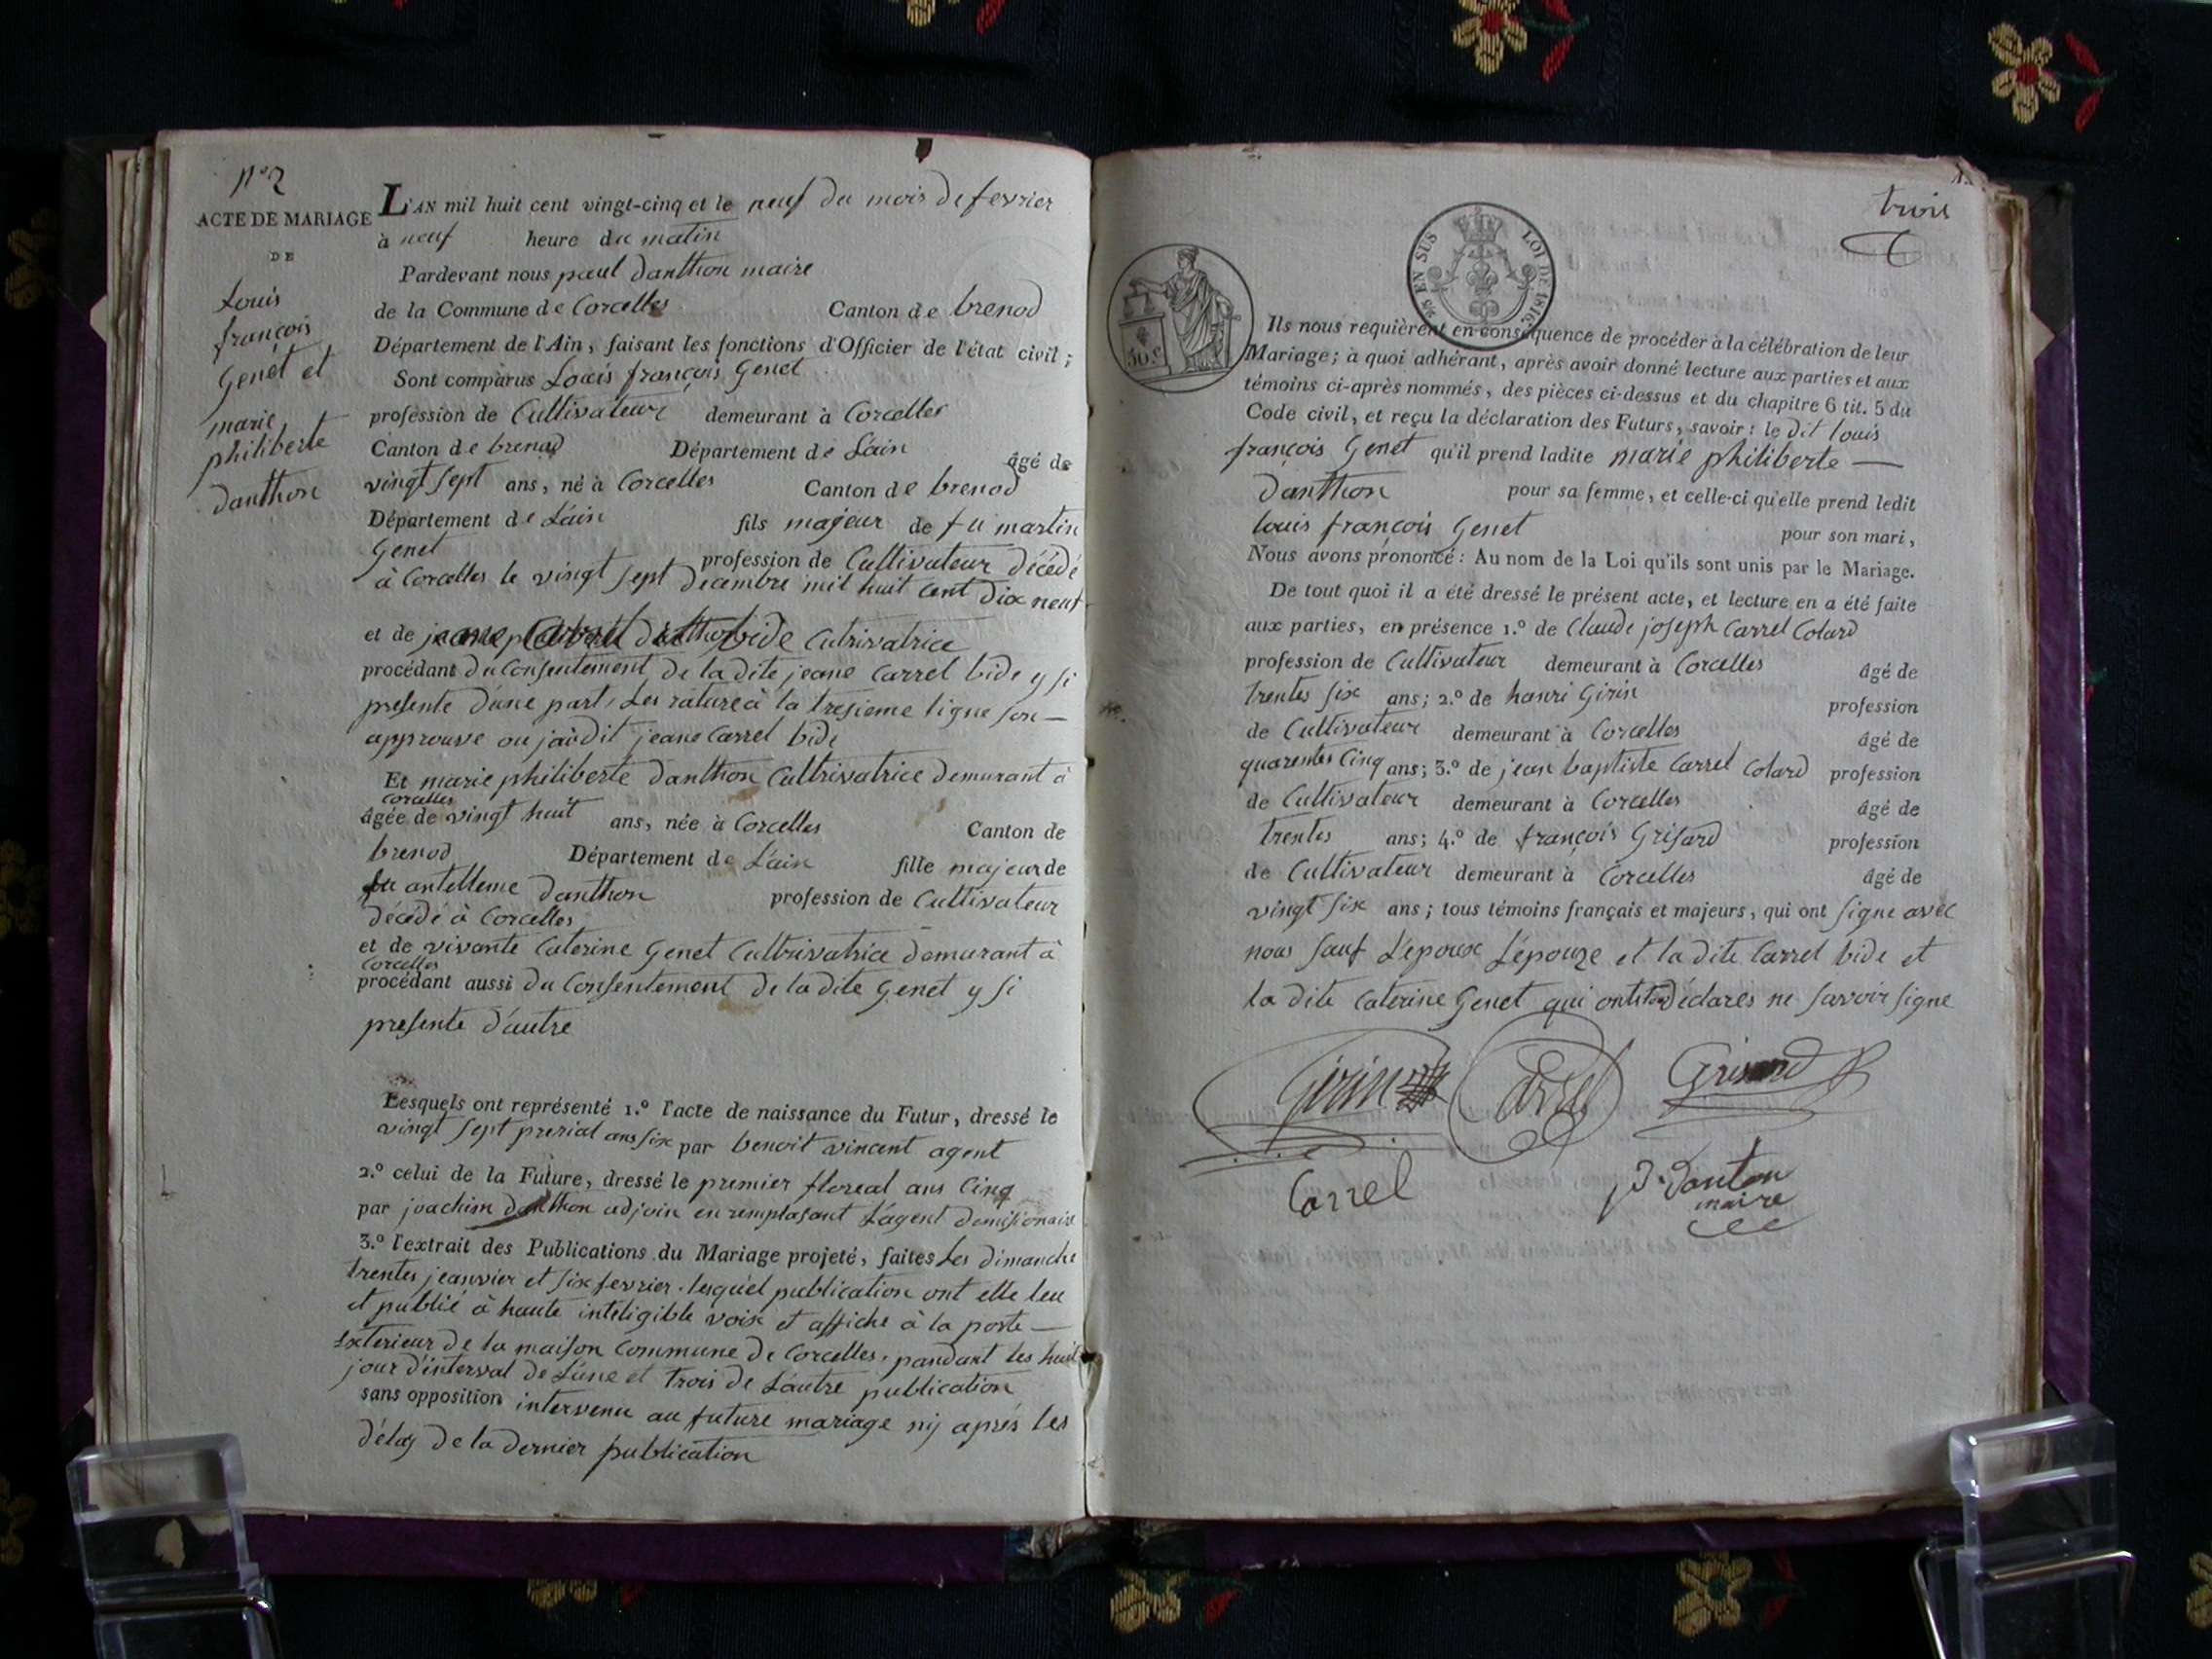 n° 2
ACTE DE MARIAGE
DE
Louis
françois
Genet et
marie
philiberte
danthon
L'AN mil huit cent vingt-cinq et le neuf du mois de fevrier
à neuf heure du matin
Pardevant nous paul danthon maire
de la Commune de Corcelles Canton de brenod
Département de l'Ain, faisant les fonctions d'Officier de l'état civil;
Sont comparus Louis françois Genet
profession de Cultivateur demeurant à Corcelles
Canton de brenod Département de L'ain âgé de
vingt sept ans, né à Corcelles Canton de brenod
Département de L'ain fils majeur de fu martin
Genet profession de Cultivateur décédé
à Corcelles le vingt sept decembre mil huit cent dix neuf
et de bide Cutrivatrice
procédant du Consentement de la dite jeane Carrel bide y si
presente d'une part, Les rature à la tresieme ligne son
approuve ou jaùdit jeane Carrel bide
Et marie philiberte danthon Cultrivatrice demurant à
Corcelles
âgée de vingt huit ans, née à Corcelles Canton de
brenod Département de L'ain fille majeur de
fu antelleme danthon profession de Cultivateur
décédé à Corcelles
et de vivante Caterine Genet Cultrivatrice demurant à
Corcelles
procédant aussi du Consentement de la dite Genet y si
presente d'autre
Lesquels ont représenté 1.° l'acte de naissance du Futur, dressé le
vingt sept prerial ans six par benoit vincent agent
2.° celui de la Future, dressé le premier floreal ans Cinq
par joachim danthon adjoin en remplasant L'agent demisionaire
3.° l'extrait des Publications du Mariage projeté, faites Les dimanche
trentes jeanvier et six fevrier. lesquel publication ont elle leu
et publié à haute inteligible voix et affiche à la porte
Exterieur de la maison Commune de Corcelles, pandant les huit
jour d'interval de L'une et trois de L'autre publication
sans opposition intervenu au future mariage nij aprés les
délay de la dernier publication
trois
25 EN SUS LOI DE 1816.
50.c
Ils nous requièrent en conséquence de procéder à la célébration de leur
Mariage; à quoi adhérant, après avoir donné lecture aux parties et aux
témoins ci-après nommés, des pièces ci-dessus et du chapitre 6 tit. 5 du
Code civil, et reçu la déclaration des Futurs, savoir: le dit louis
françois Genet qu'il prend ladite marie philiberte
danthon pour sa femme, et celle-ci qu'elle prend ledit
louis françois Genet pour son mari,
Nous avons prononcé: Au nom de la Loi qu'ils sont unis par le Mariage.
De tout quoi il a été dressé le présent acte, et lecture en a été faite
aux parties, en présence 1.° de Claude joseph Carrel Colard
profession de Cultivateur demeurant à Corcelles âgé de
trentes six ans; 2.° de hanri Girin profession
de Cultivateur demeurant à Corcelles âgé de
quarentes Cinq ans; 3.° de jean baptiste Carrel Colard profession
de Cultivateur demeurant à Corcelles âgé de
trentes ans; 4.° de françois Grisard profession
de Cultivateur demeurant à Corcelles âgé de
vingt six ans; tous témoins français et majeurs, qui ont signe avec
nous sauf L'epoux L'épouze et la dite Carrel bide et
la dite Caterine Genet qui ont déclarés ne savoir signe
Girin Carrel Grisard
Carrel P. Danton
maire